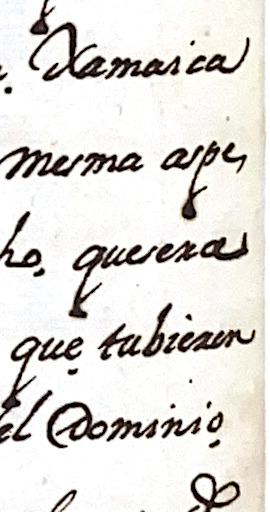 Xamaica
mesma aspe,
ho, que era
que tubieren
el Dominio